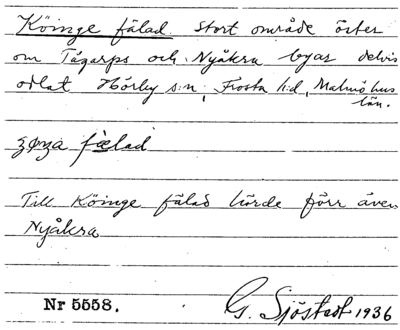 Köinge fälad. Stort område öster
om Tågarps och Nyåkra byar delvis
odlat Hörby s:n, Frosta h:d, Malmöhus
län.
fælad
Till Köinge fälad hörde förr även
Nyåkra
Nr 5558.
G. Sjöstedt 1936